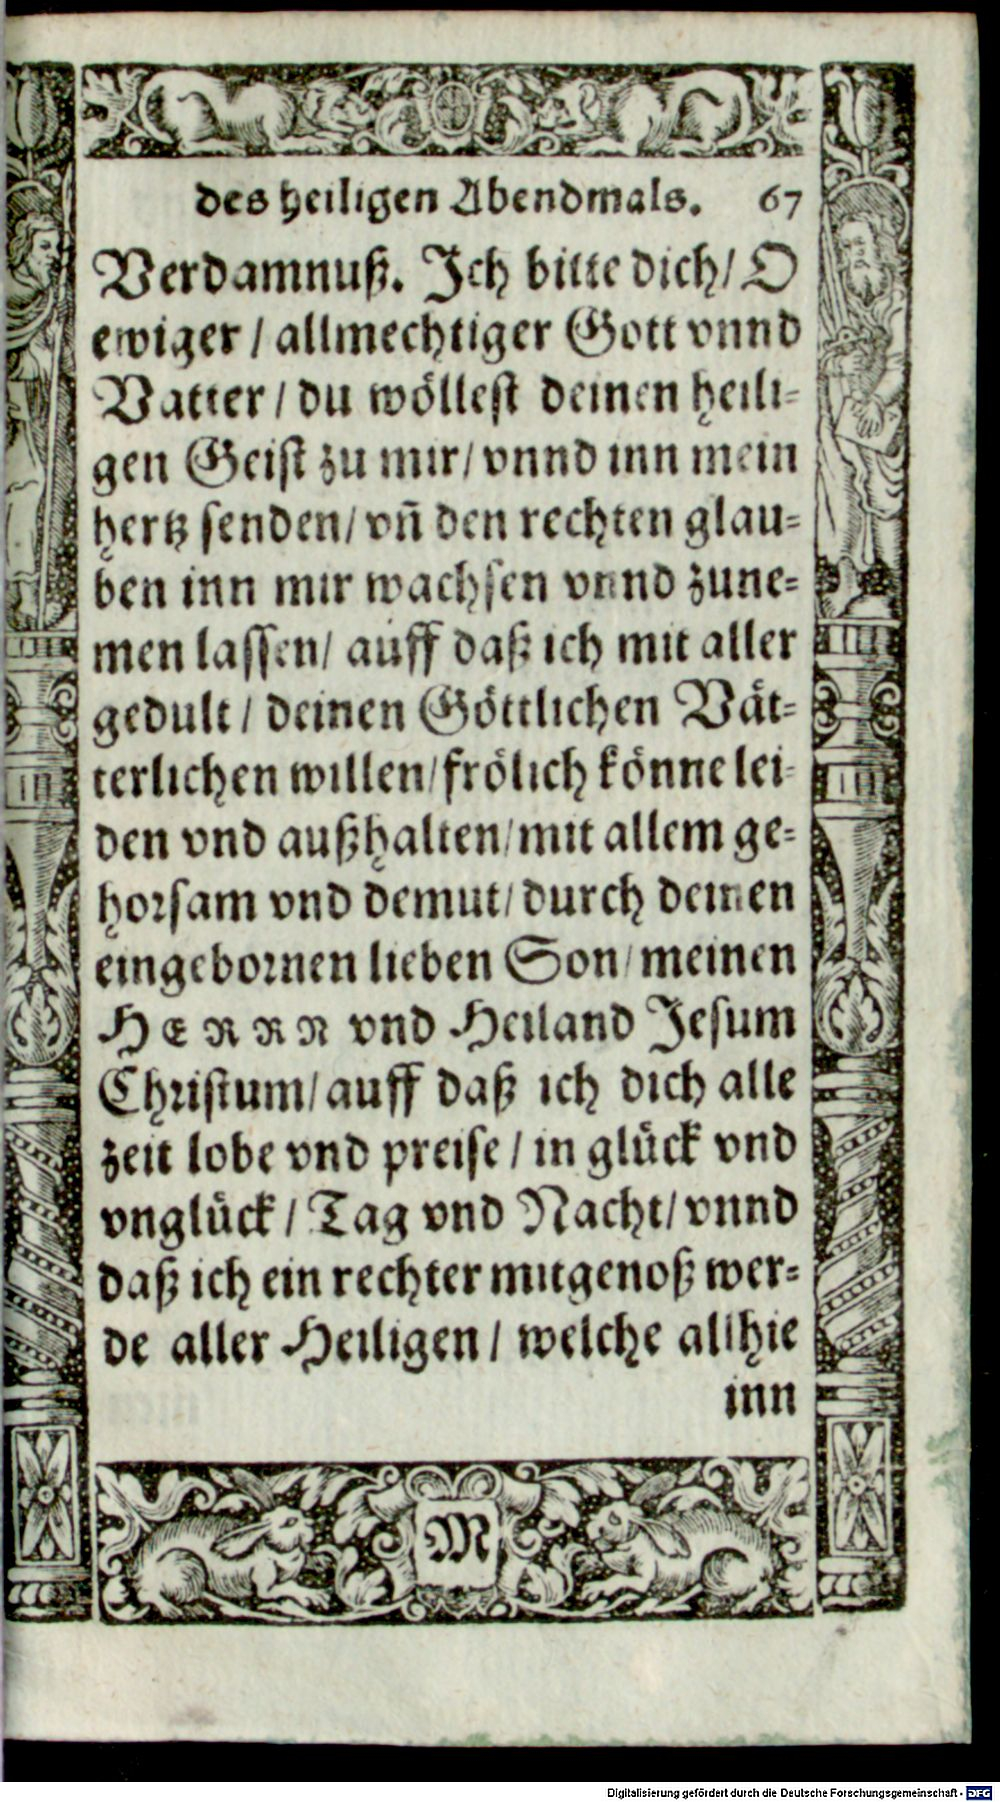 des heiligen Abendmals. 67
Verdamnuß. Ich bitte dich/ O
ewiger / allmechtiger Gott vnnd
Vatter / du wöllest deinen heili-
gen Geist zu mir/ vnnd inn mein
hertz senden/ vñ den rechten glau-
ben inn mir wachsen vnnd zune-
men lassen/ auff daß ich mit aller
gedult / deinen Göttlichen Vät-
terlichen willen/ frölich könne lei-
den vnd außhalten/ mit allem ge-
horsam vnd demut/ durch deinen
eingebornen lieben Son/ meinen
HERRN vnd Heiland Jesum
Christum/ auff daß ich dich alle
zeit lobe vnd preise / in glück vnd
vnglück / Tag vnd Nacht/ vnnd
daß ich ein rechter mitgenoß wer-
de aller Heiligen / welche allhie
inn
M
Digitalisierung gefördert durch die Deutsche Forschungsgemeinschaft - DFG